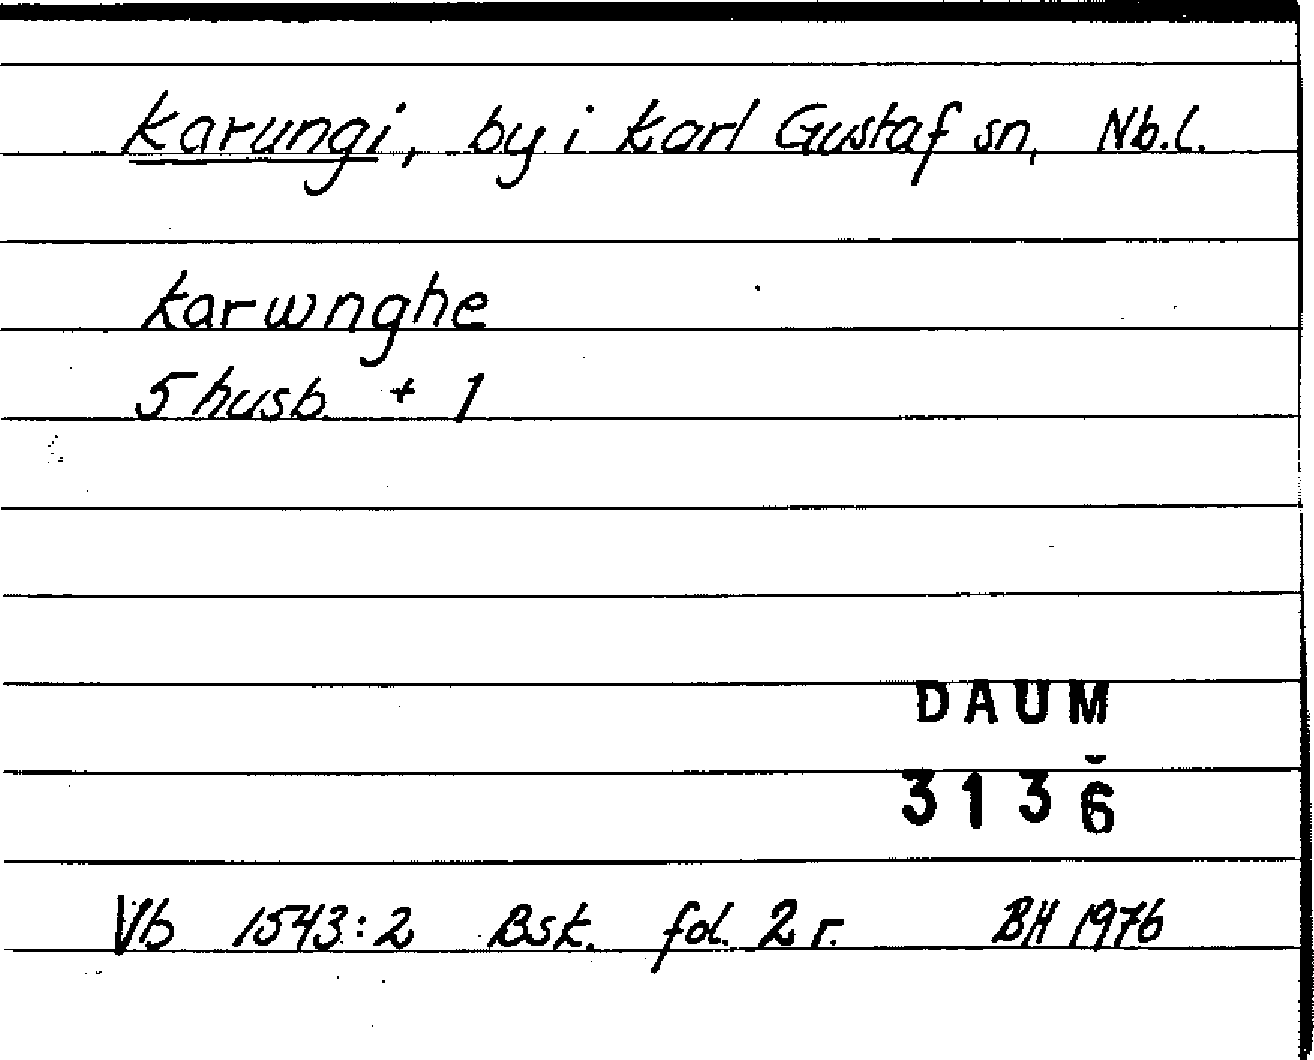 Karungi, by i Karl Gustaf sn, Nb.l.
Karwnghe
5 husb. + 1
DAUM
3136
Vb 1543:2 Bsk. fol. 2 r. BH 1976